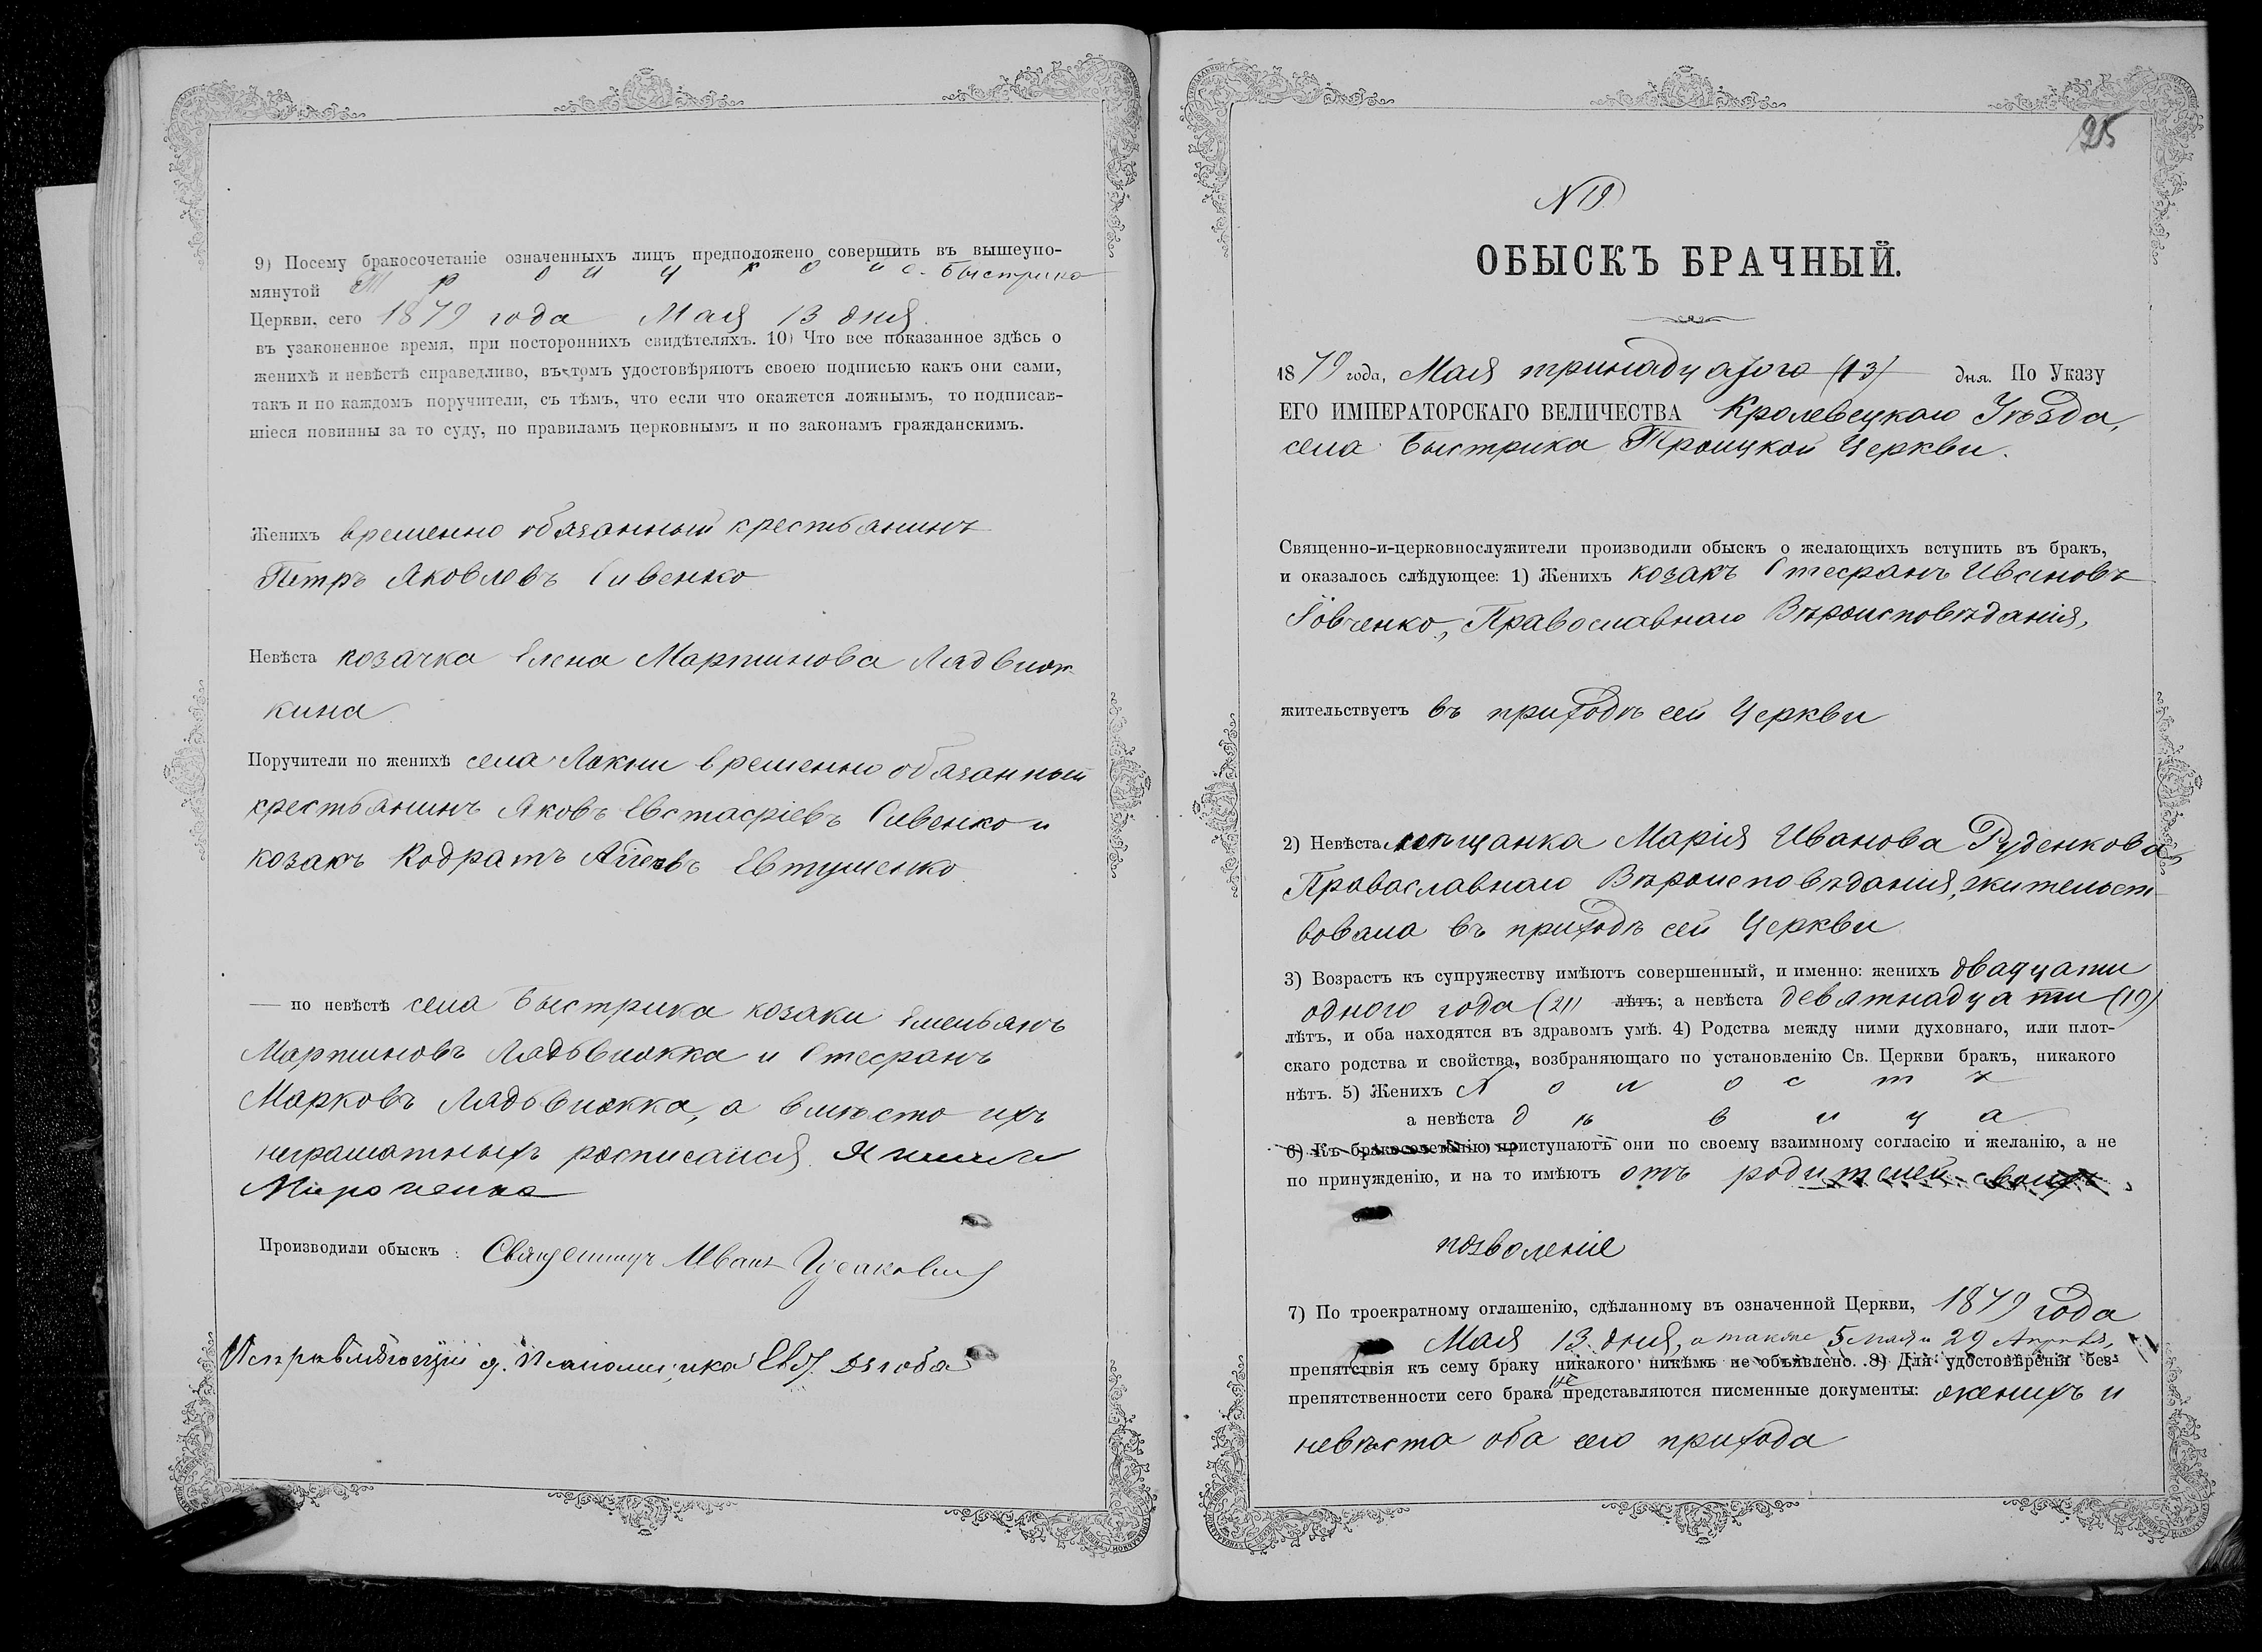 9) Посему бракосочетаніе означенныхъ лицъ предположено совершить въ вышеупо-
мянутой Троицкой с. Быстрика
Церкви, сего 1879 года Мая 13 дня
въ узаконенное время, при постороннихъ свидѣтеляхъ. 10) Что все показанное здѣсь о
женихѣ и невѣстѣ справедливо, въ томъ удостовѣряютъ своею подписью какъ они сами,
такъ и по каждомъ поручители, съ тѣмъ, что если что окажется ложнымъ, то подписав-
шіеся повинны за то суду, по правиламъ церковнымъ и по законамъ гражданскимъ.
Женихъ временно обязанный крестьянинъ
Петръ Яковлевъ Сивенко
Невѣста козачка Елена Мартинова
кина
Поручители по женихѣ села Локни временно обязанный
крестьянинъ Яковъ Евстафіевъ Сивенко и
козакъ Кодратъ Евтушенко
— по невѣстѣ села Быстрика козаки Емельянъ
Мартиновъ и Стефанъ
Марковъ а вмѣсто ихъ
неграматныхъ росписался
Производили обыскъ : Священникъ Иванъ
Исправляющій д. Псаломщика
25
N 19
ОБЫСКЪ БРАЧНЫЙ.
1879 года, Мая тринадцатого (13) дня. По Указу
ЕГО ИМПЕРАТОРСКАГО ВЕЛИЧЕСТВА Кролевецкаго Уѣзда,
села Быстрика Троицкой Церкви.
Священно-и-церковнослужители производили обыскъ о желающихъ вступить въ бракъ,
и оказалось слѣдующее: 1) Женихъ козакъ Стефанъ Ивановъ
Православнаго Вѣроисповѣданія,
жительствуетъ въ приходѣ сей Церкви
2) Невѣста мѣщанка Марія Иванова Руденкова
Православнаго Вѣроисповѣданія, жительст
вовала въ приходѣ сей Церкви
3) Возрастъ къ супружеству имѣютъ совершенный, и именно: женихъ двадцати
одного года (21) лѣтъ; а невѣста девятнадцати (19)
лѣтъ, и оба находятся въ здравомъ умѣ. 4) Родства между ними духовнаго, или плот-
скаго родства и свойства, возбраняющаго по установленію Св. Церкви бракъ, никакого
нѣтъ. 5) Женихъ холостъ
а невѣста дѣвица
6) Къ бракосочетанію приступаютъ они по своему взаимному согласію и желанію, а не
по принужденію, и на то имѣютъ отъ родителей своихъ
позволеніе
7) По троекратному оглашенію, сдѣланному въ означенной Церкви, 1879 года
Мая 13 дня, а также 5 мая и 29 Апрѣля,
препятствія къ сему браку никакого никѣмъ не объявлено. 8) Для удостовѣренія без-
препятственности сего брака не представляются писменные документы: женихъ и
невѣста оба сего прихода